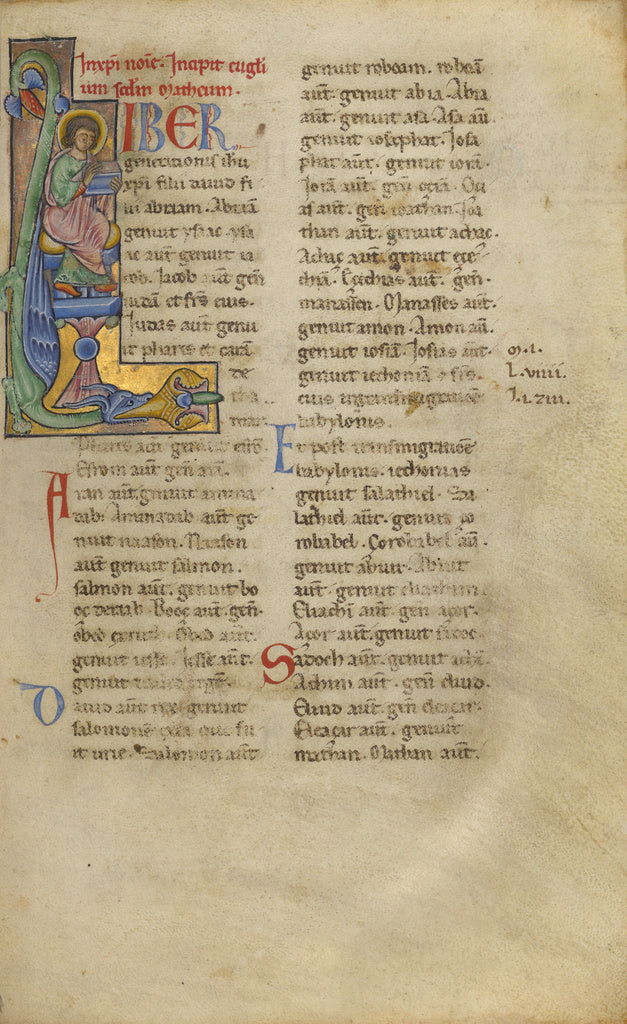 In xp̄i noīe. Incipit eugli
um scđm Matheum.
LIBER
generationis ihu
xp̄i filii dauid fi
lii abraam. Abraā
genuit ysaac. ysa
ac aut̄ genuit ia
cob. Iacob aut̄ geñ
iudā et fr̄s eius.
Iudas aut̄ genu
it phares et zarā
de
tha
mar
Phares aut̄ genuit esrō
Esrom aut̄ geñ arā.
Aran aut̄ genuit amina
dab. Aminadab aut̄ ge
nuit naason. Naason
aut̄ genuit salmon.
Salmon aut̄. genuit bo
oç Booç aut̄. geñ.
obed Obed aut̄.
genuit iesse. Iesse aut̄.
genuit
Dauid aut̄ rex genuit
salomonem ex ea que fu
it urie. Salomon aut̄
genuit roboam. roboā
aut̄. genuit abia. Abia
aut̄. genuit asa. Asa aū
genuit iosaphat. Iosa
phat aut̄. genuit iorā.
Iorā aut̄. geñ oçiā. Oçi
as aut̄. geñ ioathan. Ioa
than aut̄. genuit achaç.
Achaç aut̄. genuit eçe
chiā. Eçechias aut̄. geñ.
manassen. Manasses aut̄.
genuit amon. Amon aū.
genuit iosiā. Iosias aut̄.
genuit iechoniā & fr̄s.
eius in transmigratiōe
babylonis.
Et post transmigratiōe
babylonis. iechonias
genuit salathiel. Sa
lathiel aut̄. genuit ço
robabel. Çorobabel aū.
genuit abiut. Abiut
aut̄. genuit eliachim.
Eliachī aut̄. geñ açor.
Açor aut̄. genuit sadoc.
Sadoch aut̄. genuit achī.
Achim aut̄. geñ eliud.
Eliud aut̄. geñ eleaçar.
Eleaçar aut̄. genuit
mathan. Mathan aut̄.
M. I.
L. VIIII.